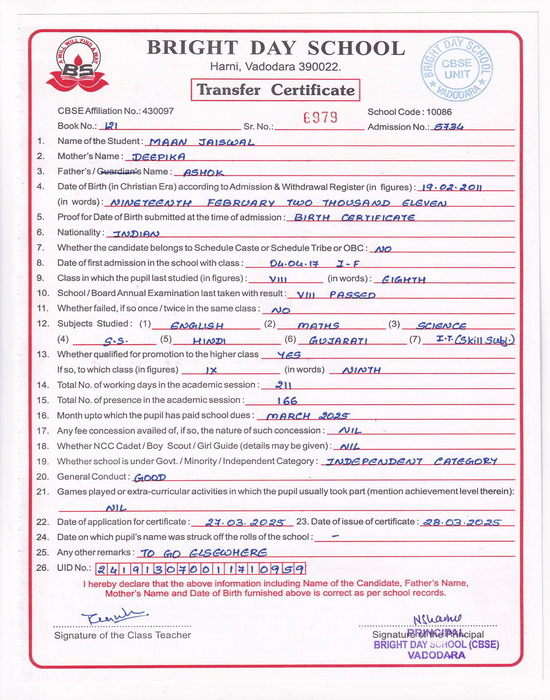 A WILL WILL FIND A WAY
BS
BRIGHT DAY SCHOOL
Harni, Vadodara 390022.
BRIGHT DAY SCHOOL
CBSE
UNIT
VADODARA
Transfer Certificate
CBSE Affiliation No.: 430097
School Code : 10086
Book No.: 121 Sr. No.: 6979 Admission No.: 5734
1. Name of the Student : MAAN JAISWAL
2. Mother's Name : DEEPIKA
3. Father's / Guardian's Name : ASHOK
4. Date of Birth (in Christian Era) according to Admission & Withdrawal Register (in figures) : 19.02.2011
(in words) : NINETEENTH FEBRUARY TWO THOUSAND ELEVEN
5. Proof for Date of Birth submitted at the time of admission : BIRTH CERTIFICATE
6. Nationality : INDIAN
7. Whether the candidate belongs to Schedule Caste or Schedule Tribe or OBC : NO
8. Date of first admission in the school with class : 04.04.17 I-F
9. Class in which the pupil last studied (in figures) : VIII (in words) : EIGHTH
10. School / Board Annual Examination last taken with result : VIII PASSED
11. Whether failed, if so once / twice in the same class : NO
12. Subjects Studied : (1) ENGLISH (2) MATHS (3) SCIENCE
(4) S.S. (5) HINDI (6) GUJARATI (7) I.T.(Skill Subj.)
13. Whether qualified for promotion to the higher class YES
If so, to which class (in figures) IX (in words) NINTH
14. Total No. of working days in the academic session : 211
15. Total No. of presence in the academic session : 166
16. Month upto which the pupil has paid school dues : MARCH 2025
17. Any fee concession availed of, if so, the nature of such concession : NIL
18. Whether NCC Cadet / Boy Scout / Girl Guide (details may be given) : NIL
19. Whether school is under Govt. / Minority / Independent Category : INDEPENDENT CATEGORY
20. General Conduct : GOOD
21. Games played or extra-curricular activities in which the pupil usually took part (mention achievement level therein):
NIL
22. Date of application for certificate : 27.03.2025 23. Date of issue of certificate : 28.03.2025
24. Date on which pupil's name was struck off the rolls of the school : –
25. Any other remarks : TO GO ELSEWHERE
26. UID No.: 241913070011710959
I hereby declare that the above information including Name of the Candidate, Father's Name,
Mother's Name and Date of Birth furnished above is correct as per school records.
Signature of the Class Teacher
Signature of the Principal
PRINCIPAL
BRIGHT DAY SCHOOL (CBSE)
VADODARA